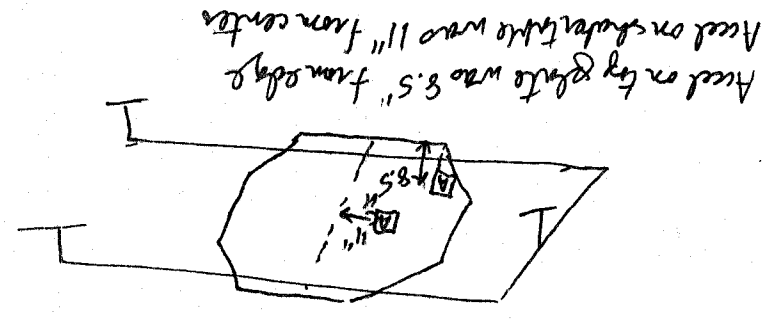 A
11"
A
8.5"
Accel on top plate was 8.5" from edge
Accel on shaker table was 11" from center